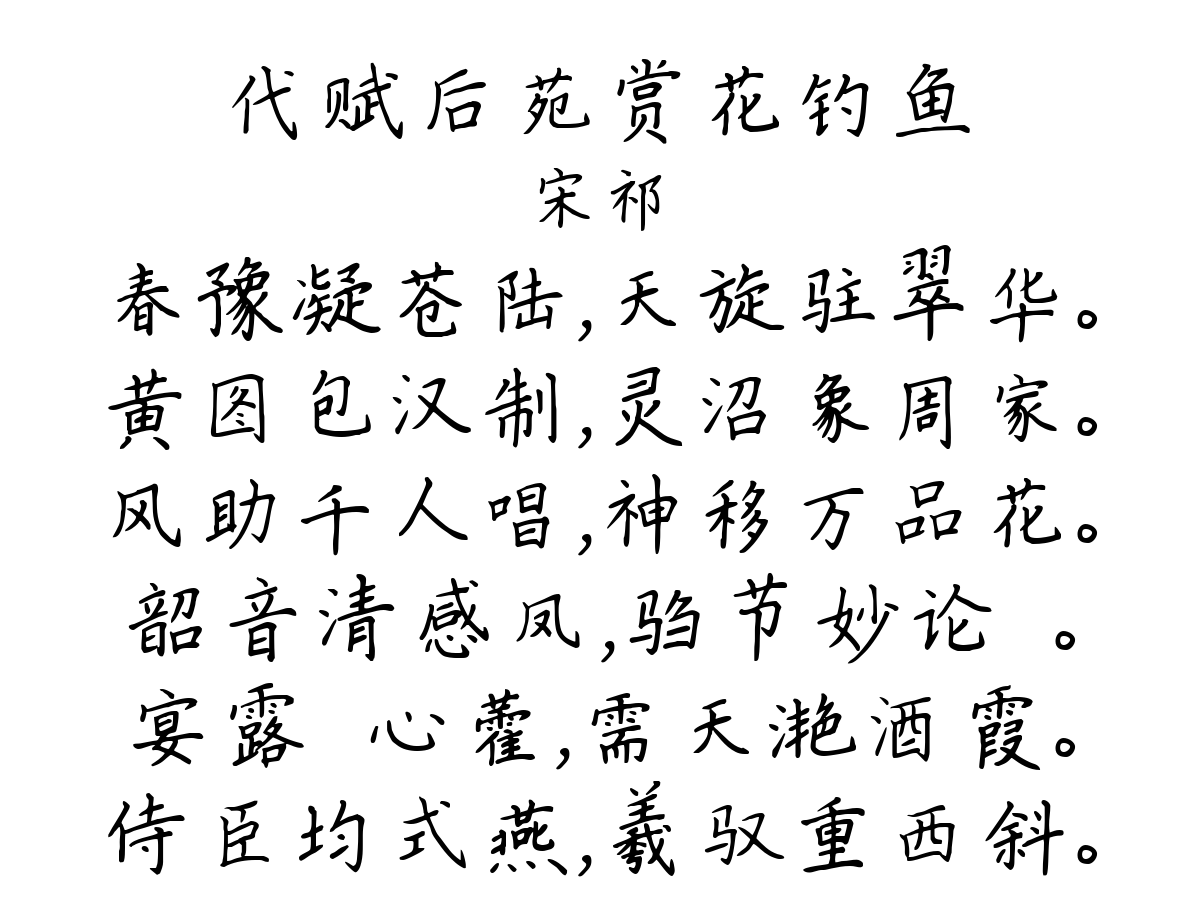 代赋后苑赏花钓鱼
宋祁
春豫凝苍陆,天旋驻翠华。
黄图包汉制,灵沼象周家。
风助千人唱,神移万品花。
韶音清感凤,驺节妙论 。
宴露 心藿,需天滟酒霞。
侍臣均式燕,羲驭重西斜。